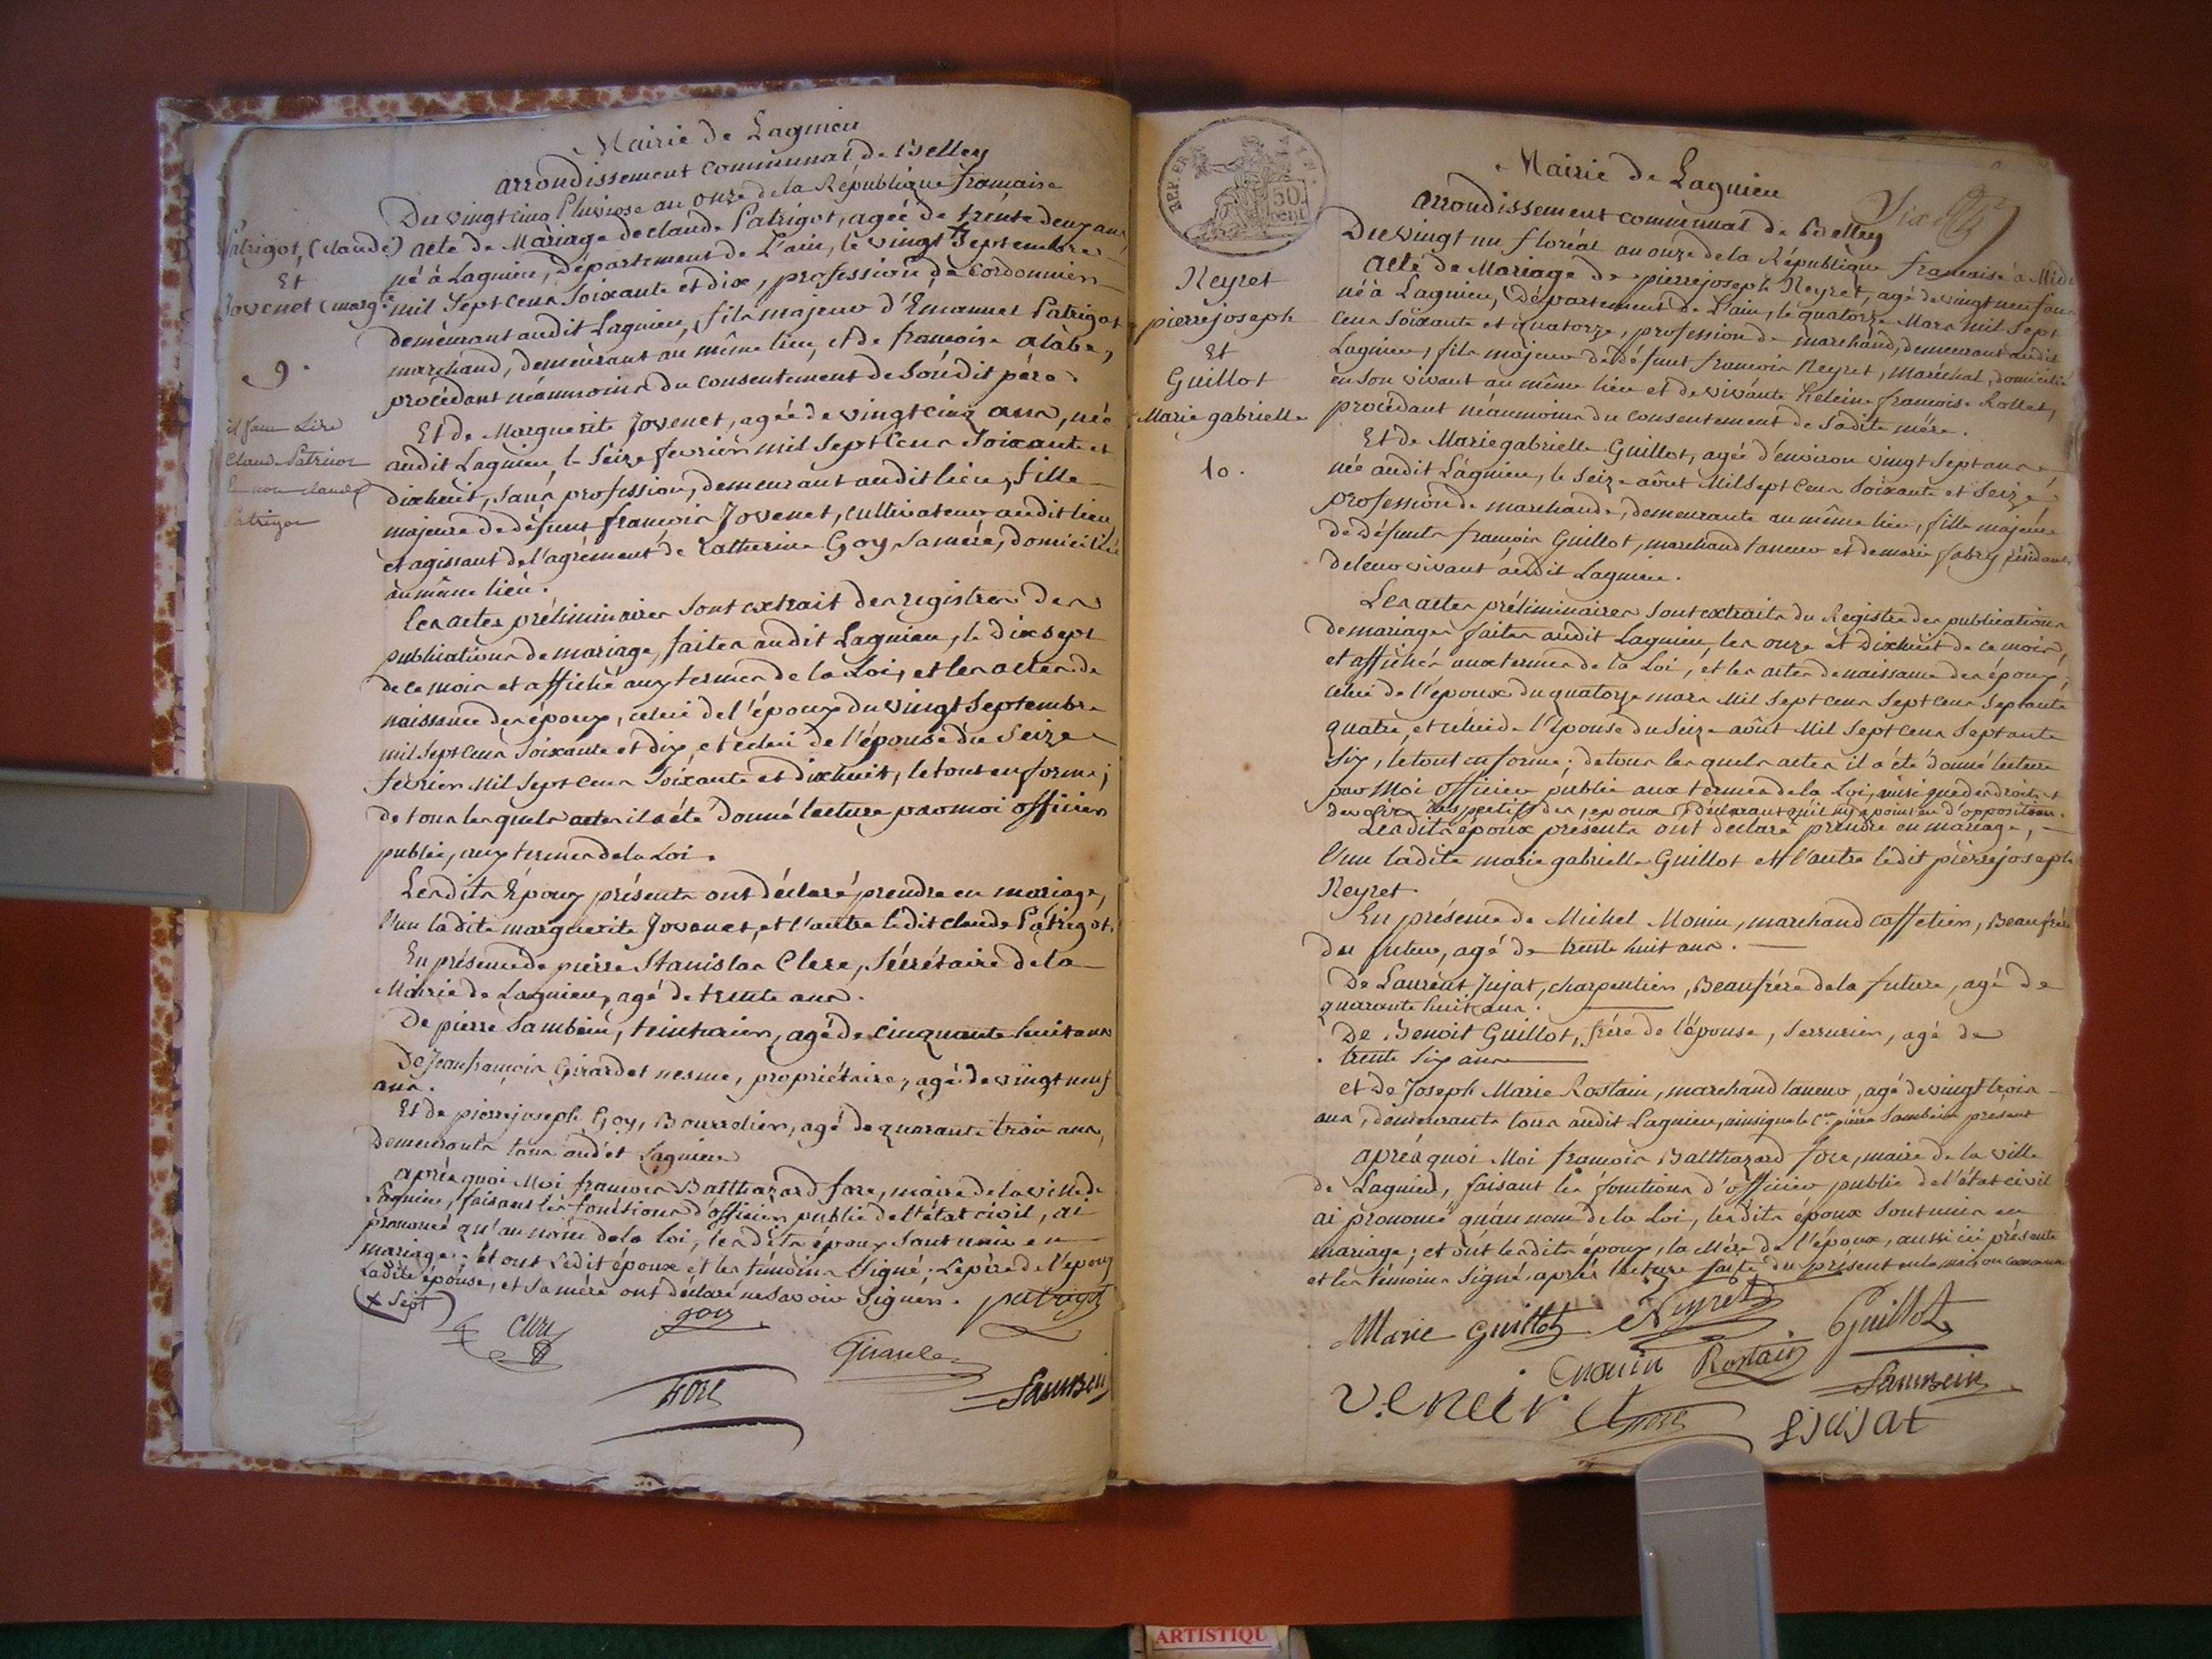 Mairie de Lagnieu
arrondissement communal de Belley
Du vingt cinq Pluviose an onze de la République française
Patrigot, (Claude)
Et
Jovenet (marg.te
9.
il faut Lire
Claude Patricot
& non claude
Patrigot
acte de Mariage de claude Patrigot, agée de trente deux ans
né à Lagnieu, département de L'ain, le vingt Septembre
mil Sept Cens Soixante et dix, profession de Cordonnier
demeurant audit Lagnieu, fils majeur d'Emanuel Patrigot
marchand, demeurant au même lieu, et de francoise alabe,
procédant néanmoins du consentement de Sondit père.
Et de Marguerite Jovenet, agée de vingt cinq ans, née
audit Lagnieu, le Seize fevrier mil Sept Cens Soixante et
dixhuit, sans profession, demeurant audit lieu, fille
majeure de défunt françois Jovenet, cultivateur audit lieu
et agissant de l'agrément de Catherine Goy Sa mère, domiciliée
au même lieu.
Les actes préliminaires Sont extrait des registres des
publications de mariage, faites audit Lagnieu, le Dix sept
de ce mois et affiché aux termes de la Loi, et les actes de
naissance des époux, celui de l'époux du vingt Septembre
mil Sept Cens Soixante et dix, et celui de l'épouse du Seize
fevrier Mil Sept Cens Soixante et Dixhuit, le tout en forme;
de tous lesquels actes il a été donné lecture par moi officier
public, aux termes de la Loi.
Lesdits Epoux présents ont déclaré prendre en mariage,
l'un ladite marguerite Jovenet, et l'autre ledit claude Patrigot.
En présence de pierre Stanislas Clerc, Sécrétaire de la
Mairie de Lagnieu, agé de trente ans.
De pierre Sambein, teinturier, agé de cinquante huit ans
De Jean françois Girardet nesme, propriétaire, agé de vingt neuf
ans.
Et de pierre joseph Goy, Bourrelier, agé de quarante trois ans,
Demeurants tous audit Lagnieu
après quoi Moi françois Balthazard fore, maire de la ville de
Lagnieu, faisant les fonctions d'officier public de l'état civil, ai
prononcé qu'au nom de la loi, lesdits époux Sont unis en
mariage; et ont Ledit époux et les témoins Signé; Le père de l'époux
Ladite épouse, et Sa mère ont déclaré ne Savoir Signer. patrigot
(+ Sept)
Clerc goy
Girardet
fore Sambein
REP. FRA.
50
cent
Mairie de Lagnieu
arrondissement communal de Belley
Du vingt un floréal an onze de la République francaise à Midi
Neyret
pierre joseph
Et
Guillot
Marie gabrielle
10.
acte de Mariage de pierre joseph Neyret, agé de vingt neuf ans
né à Lagnieu, département de L'ain, le quatorze Mars mil Sept
Cens Soixante et quatorze, profession de marchand, demeurant audit
Lagnieu, fils majeur de défunt francois Neyret, Maréchal, domicilié
en Son vivant au même lieu et de vivante heleine francoise Rollet,
procédant néanmoins du consentement de Sadite mère.
Et de Marie gabrielle Guillot, agée d'environ vingt Sept ans
née audit Lagnieu, le Seize août Mil Sept Cens Soixante et Seize
profession de marchande, demeurante au même lieu, fille majeure
de défunts francois Guillot, marchand taneur et de marie fabry résidants
de leur vivant audit Lagnieu.
Les actes préliminaires Sont extraits du Registre des publications
de mariages faites audit Lagnieu, les onze et Dixhuit de ce mois,
et affichés aux termes de la Loi, et les actes de naissance des époux,
celui de l'époux du quatorze mars Mil Sept Cens Sept Cens Septante
quatre, et celui de l'Epouse du Seize août Mil Sept Cens Septante
Six, le tout en forme; de tous lesquels actes il a été donné lecture
par Moi officier public aux termes de la Loi, ainsi que des droits et
devoirs respectifs des époux et déclarant qu'il n'y a point eu d'opposition.
Lesdits époux présents ont déclaré prendre en mariage,
l'un ladite marie gabrielle Guillot et l'autre ledit pierre joseph
Neyret.
En présence de Michel Monin, marchand caffetier, Beaufrère
du futur, agé de trente huit ans.
De Laurent Jujat, charpentier, Beaufrère de la future, agé de
quarante huit ans.
De Benoit Guillot, frère de l'épouse, Serrurier, agé de
trente Six ans
et de Joseph Marie Rostain, marchand taneur, agé de vingt trois
ans, demeurants tous audit Lagnieu, ainsi que le Cen pierre Sambein présent
après quoi Moi francois Balthazard fore, maire de la ville
de Lagnieu, faisant les fonctions d'officier public de l'état civil
ai prononcé qu'au nom de la Loi, lesdits époux Sont unis en
mariage; et ont lesdits époux, la Mère de l'époux, aussi ici présente
et les témoins Signé, après lecture faite du présent en la maison commune
Marie Guillot Neyret Guillot
monin Rostain Sambein
fore L jujat
ARTISTIQU